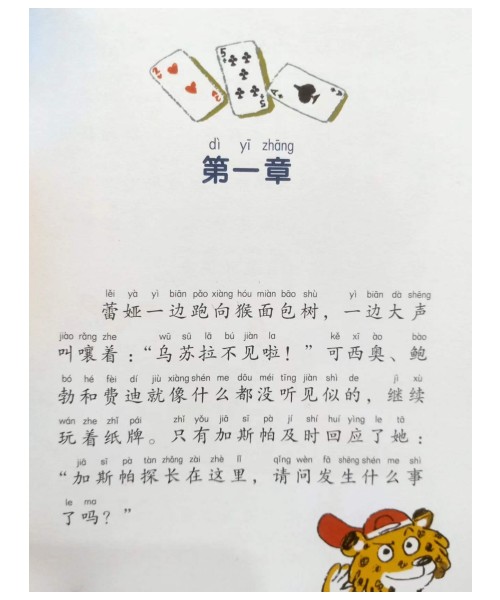 dì yī zhāng
第一章
lěi yà yì biān pǎo xiàng hóu miàn bāo shù yì biān dà shēng
蕾娅一边跑向猴面包树，一边大声
jiào rǎng zhe wū sū lā bú jiàn la kě xī ào bào
叫嚷着：“乌苏拉不见啦！”可西奥、鲍
bó hé fèi dí jiù xiàng shén me dōu méi tīng jiàn shì de jì xù
勃和费迪就像什么都没听见似的，继续
wán zhe zhǐ pái zhǐ yǒu jiā sī pà jí shí huí yìng le tā
玩着纸牌。只有加斯帕及时回应了她：
jiā sī pà tàn zhǎng zài zhè lǐ qǐng wèn fā shēng shén me shì
“加斯帕探长在这里，请问发生什么事
le ma
了吗？”